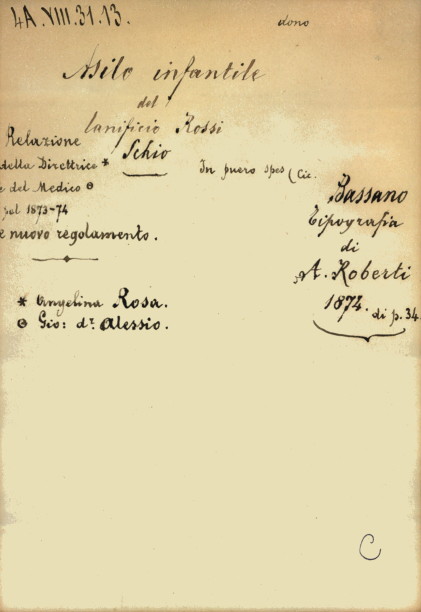 4A.VIII.31.13.
dono
Asilo infantile
del
lanificio Rossi
Schio
Relazione
della Direttrice *
e del Medico ⊖
pel 1873-74
e nuovo regolamento.
In puero spes (Cic.
Bassano
Tipografia
di
A. Roberti
1874. di p. 34.
* Angelina Rosa.
⊖ Gio: d.r Alessio.
C